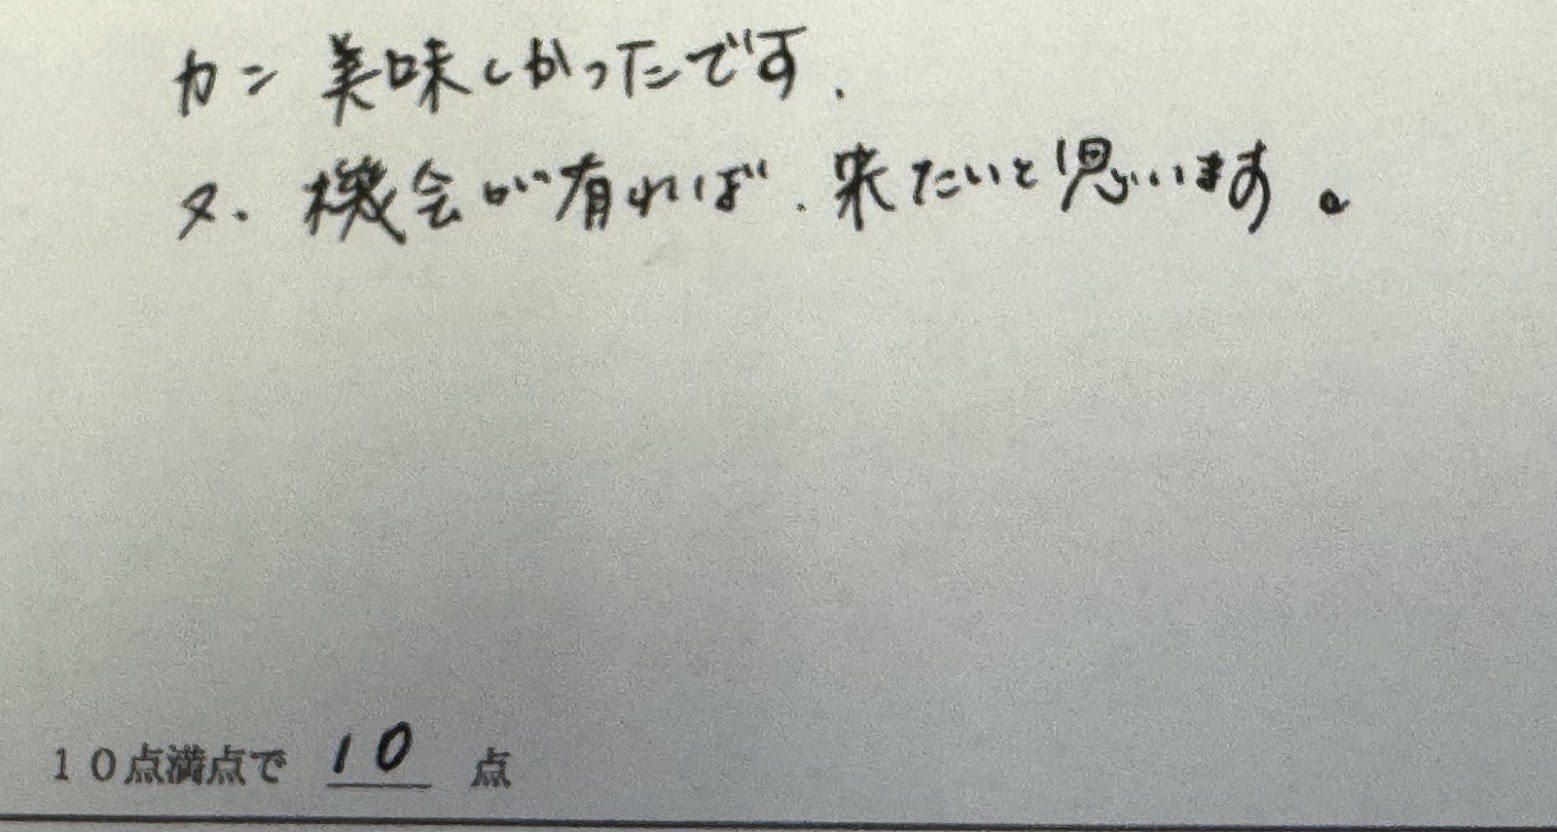 カニ 美味しかったです.
又、機会が有れば、来たいと思います。
10点満点で 10 点